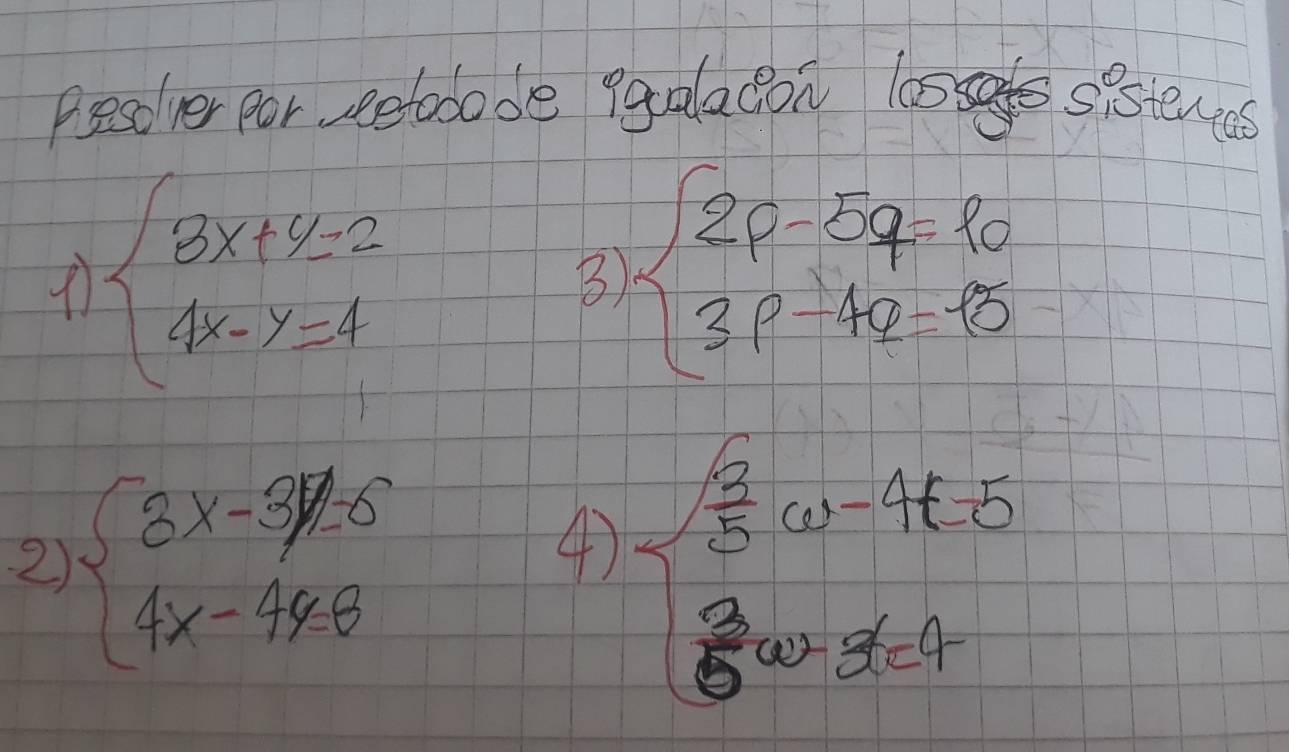 Resolver por metodo de igualación los sistemas
1) { 3x + y = 2
4x - y = 4
3) { 2p - 5q = 10
3p - 4q = 15
2) { 3x - 3y = 6
4x - 4y = 8
4) { 3/5 w - 4t = 5
3/5 w - 3t = 4